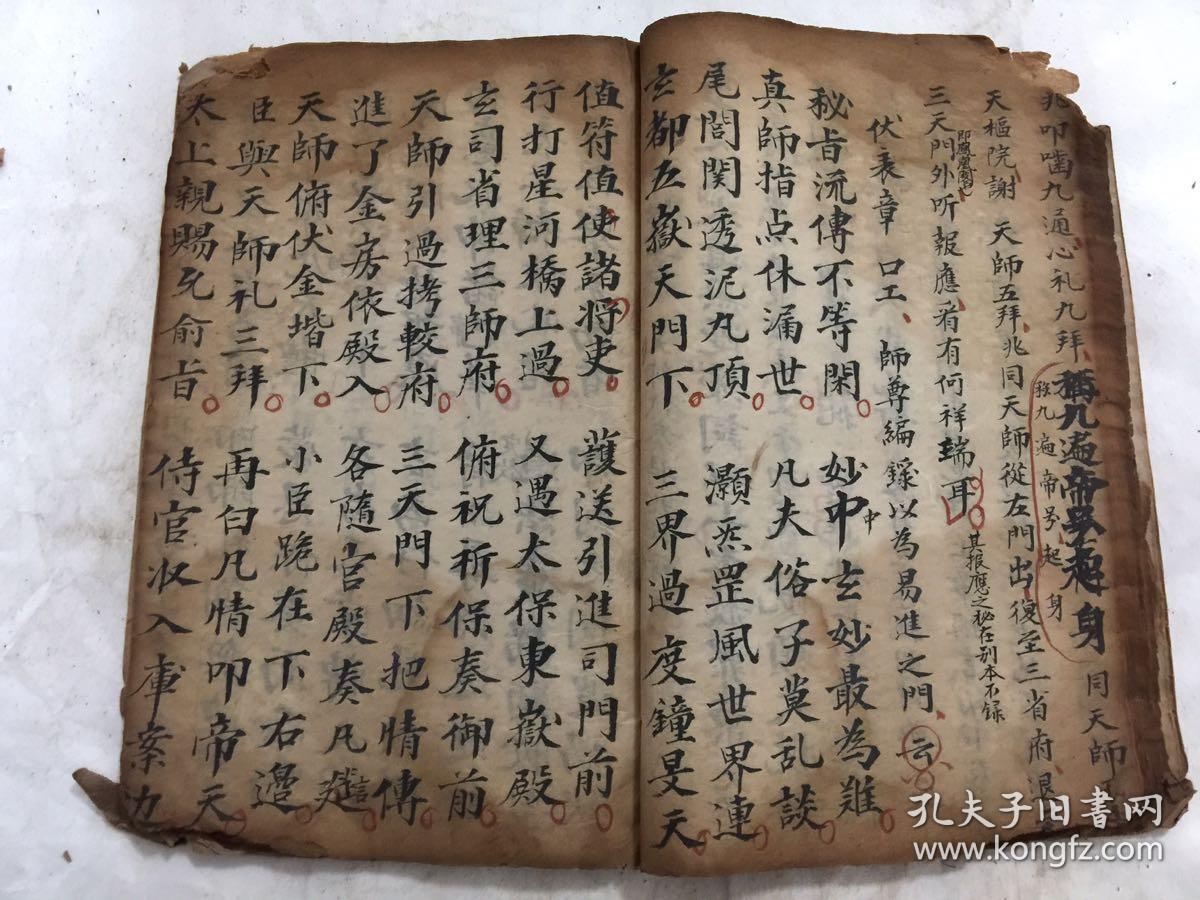 兆叩噛九通心礼九拜、稱九遍帝号起身 同天師
称九遍帝号、起身
天樞院謝 天師五拜、兆同天師從左門出、復至三省府、退
三天門外听報應、看有何祥瑞耳 其报應之秘在别本不録
伏表章 口工、師尊編錄以為易進之門、云
秘旨流傳不等閑 妙中玄妙最為難
中
真師指点休漏世 凡夫俗子莫乱談
尾閭関透泥丸頂 灝炁罡風世界連
玄都五嶽天門下 三界過度鐘旻天
值符值使諸将吏 護送引進司門前
行打星河橋上過 又過太保東嶽殿
玄司省理三師府 俯祝祈保奏御前
天師引過拷較府 三天門下把情傳
進了金房依殿入 各隨官殿奏凡
天師俯伏金堦下 小臣跪在下右邊
臣與天師礼三拜 再白凡情叩帝天
太上親賜允俞旨 侍官收入庫案
孔夫子旧書网
www.kongfz.com